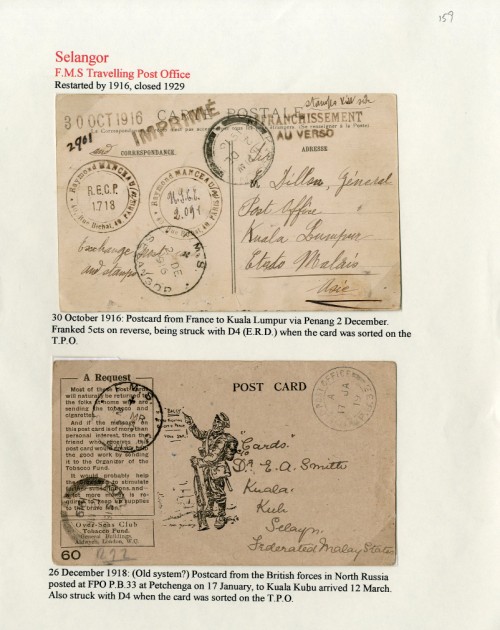 159
Selangor
F.M.S Travelling Post Office
Restarted by 1916, closed 1929
30 OCT 1916
CARTE POSTALE
IMPRIMÉ
AFFRANCHISSEMENT
AU VERSO
2901
CORRESPONDANCE
ADRESSE
Raymond MANCEAU
R.E.C.P.
1718
Raymond MANCEAU
2.091
E. Dillon, Général
Post Office
Kuala Lumpur
Etats Malais
Asie
Exchange
and stamps
SELANGOR
2 DE
1916
30 October 1916: Postcard from France to Kuala Lumpur via Penang 2 December.
Franked 5cts on reverse, being struck with D4 (E.R.D.) when the card was sorted on the
T.P.O.
A Request
Most of these postcards
will naturally be returned to
the folks at home who are
sending the tobacco and
cigarettes.
And if the message on
this post card is of more than
personal interest, then the
friend who receives this
post card would
the good work by sending
it to the Organizer of the
Tobacco Fund.
It would probably help
Over-Seas Club
Tobacco Fund.
General Buildings,
Aldwych, London, W.C.
60
POST CARD
17 JA
19
"Cards"
Dr. E. A. Smith
Kuala
Kub
Selayn
Federated Malay States
26 December 1918: (Old system?) Postcard from the British forces in North Russia
posted at FPO P.B.33 at Petchenga on 17 January, to Kuala Kubu arrived 12 March.
Also struck with D4 when the card was sorted on the T.P.O.